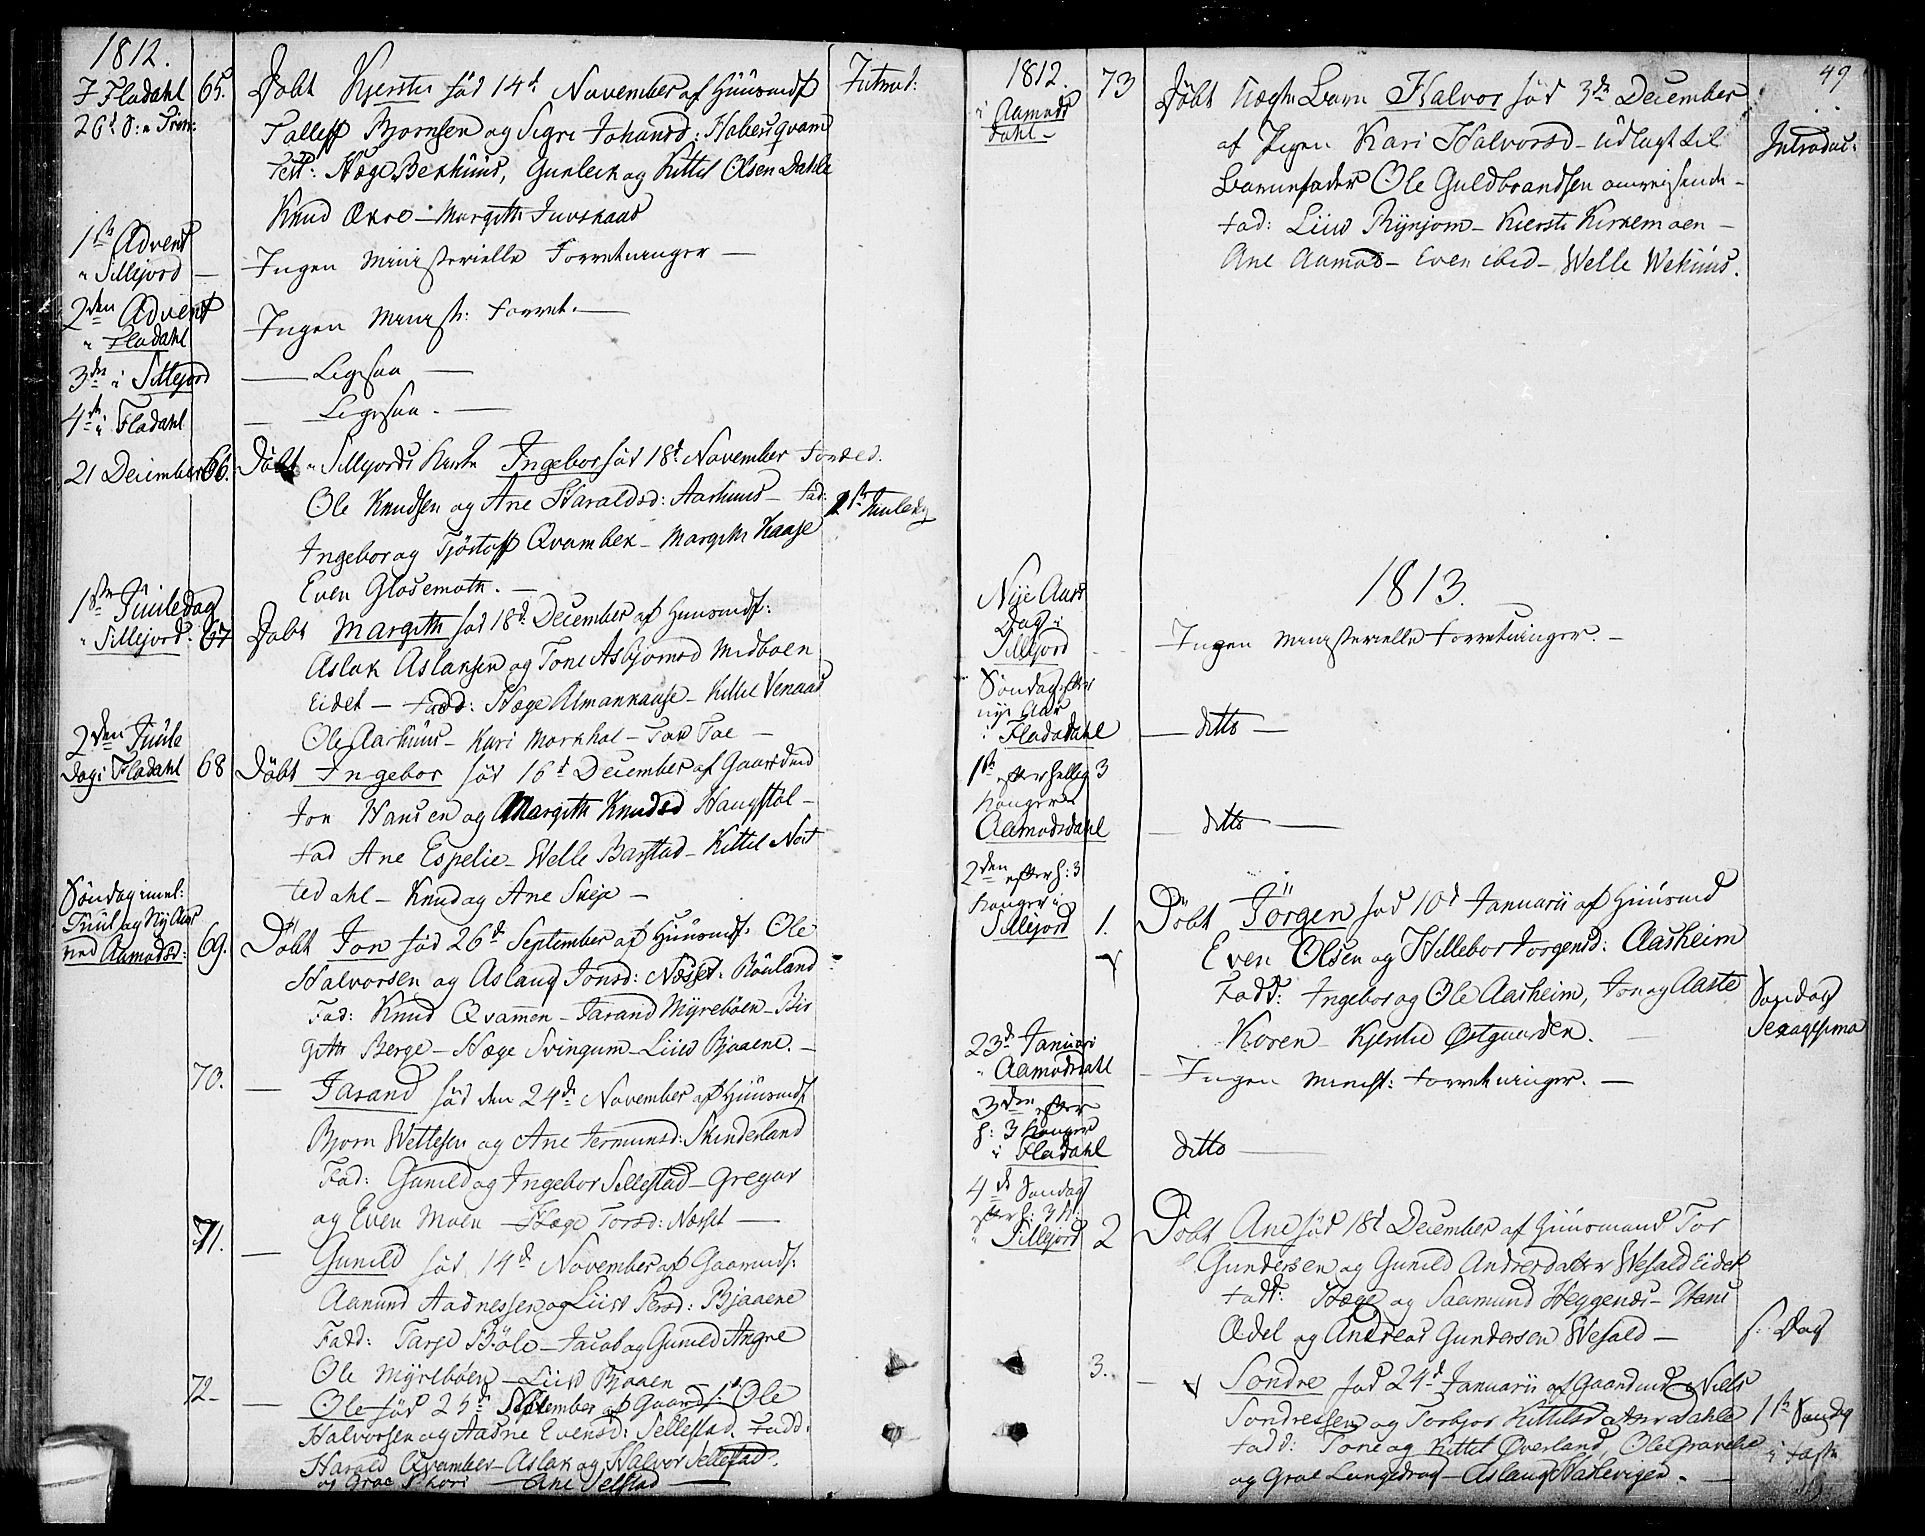 1812.
I Fladahl 65. Døbt Kjersti fød 14d November af Huusmdf Introd:
26d S: Trin: Tallef Bjørnsen og Sigri Johansd: Haberqvam
Test: Hæge Bekhuus, Gunleik og Kittil Olsen Dahle
Knud Økre – Margith Juvskaas
1ste Advent
i Sillejord – Ingen ministerielle Forretninger –
2den Advent
i Fladahl Ingen minist: Forret. –
3de i Sillejord – Ligesaa –
4de i Fladahl – Ligesaa. –
21 December 66. Døbt i Sillejords Kirke Ingebor fød 18d November
Ole Knudsen og Ane Haraldsd: Aarhuus – Fad: 1ste Juuledag
Ingebor og Tjøstoff Qvambek – Margith Haase
Even Glosemoth. –
1ste Juuledag
i Sillejord. 67 Døbt Margith fød 18d December af Huusmdf:
Aslak Aslaksen og Tone Asbjørnsd Midboen
Eidet – Fadd: Hæge Almankaase – Kittil Venaas
Ole Aarhuus – Kari Morkhol – Tov Toe –
2den Juule
Dag i Fladahl 68 Døbt Ingebor fød 16d December af Gaardmd
Jon Hansen og Margith Knudsd Haugstøl –
Fad Ane Espelie – Welle Barstad – Kittil Not
tedahl – Knud og Ane Skeje –
Søndag imel:
Juul og Ny Aar
ved Aamodsd: 69. Døbt Jon fød 26d September af Huusmdf: Ole
Halvorsen og Aslaug Jonsd: Næsset: Rouland
Fad: Knud Qvamen – Tarand Myreboen – Bir
gith Berge – Hæge Svingum – Liws Bjaaene. –
70. – Tarand fød den 24d November af Huusmdf
Bjørn Wettesen og Ane Jermunsd: Skinderland
Fad: Gunild og Ingebor Sillestad – Gregar
og Even Moen – Hæge Torsd: Næsset –
71. – Gunild fød 14d November af Gaarmdf:
Aanund Aadnessen og Liiws Persd: Bjaaene
Fadd: Tarje Bøle – Jacob og Gunild Angre
Ole Myrebøen – Liiws Bjaaen
72. – Ole fød 25d September af Gaardf: Ole
Halvorsen og Aadne Evensd: Sellestad. Fadd:
Harald Qvambek – Aslak og Halvor Sellestad.
og Groe – Ane Selstad –
49
1812. 73 Døbt uægte Barn Halvor fød 3de December
i Aamods
dahl – af Pigen Kari Halvorsd – Udlagt til Introduc:
Barnefader Ole Guldbrandsen omreisende –
Fad: Liws Rynjom – Kiersti Kirkemoen –
Ane Aamod – Even ibid – Welle Wekuus.
1813.
Nye Aars
Dag i
Sillejord – Ingen ministerielle Forretninger. –
Søndag efter
nye Aar
i Fladdahl – ditto –
1ste efter hellig 3
Konger i
Aamodsdahl – ditto –
2den efter h: 3
Konger i
Sillejord 1. Døbt Jörgen fød 10d Januarii af Huusmd
Even Olsen og Hillebor Jorgensd: Aasheim
Fadd: Ingebor og Ole Aasheim, Jon og Aaste Søndag
Koren – Kjerstie Østgaarden. Sexagesima
23d Januari
i Aamodsdahl – Ingen minist: Forretninger. –
3den efter
h: 3 Konger
i Fladahl ditto –
4de Søndag
efter h: 3 K:
i Sillejord 2 Døbt Ane fød 18d December af Huusmand Tor
Gundersen og Gunild Andresdatter Wefald Eidet
Fadd: Hæge og Saamund Heggenes – Hans
Ødel og Andreas Gundersen Wefald – s: Dag
3. – Sondre fød 24d Januarii af Gaardmd Nills
Sondressen og Torbjor Kittilsd Dahle 1ste Søndag
Fadd: Tone og Kittil Øverland, Ole Gravelie i Faste
og Groe Lungedrag – Aslaug Hatlevigen. –